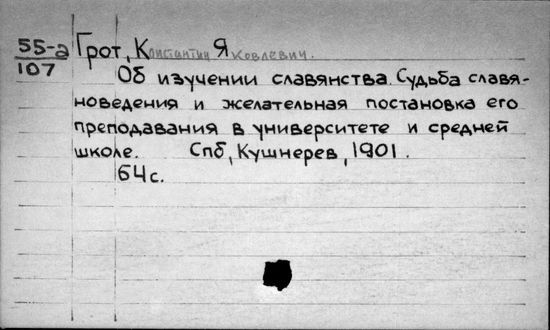 55-а Грот, Константин Яковлевич.
107
Об изучении славянства. Судьба славя-
новедения и желательная постановка его
преподавания в университете и средней
школе. Спб, Кушнерев, 1901.
64 с.